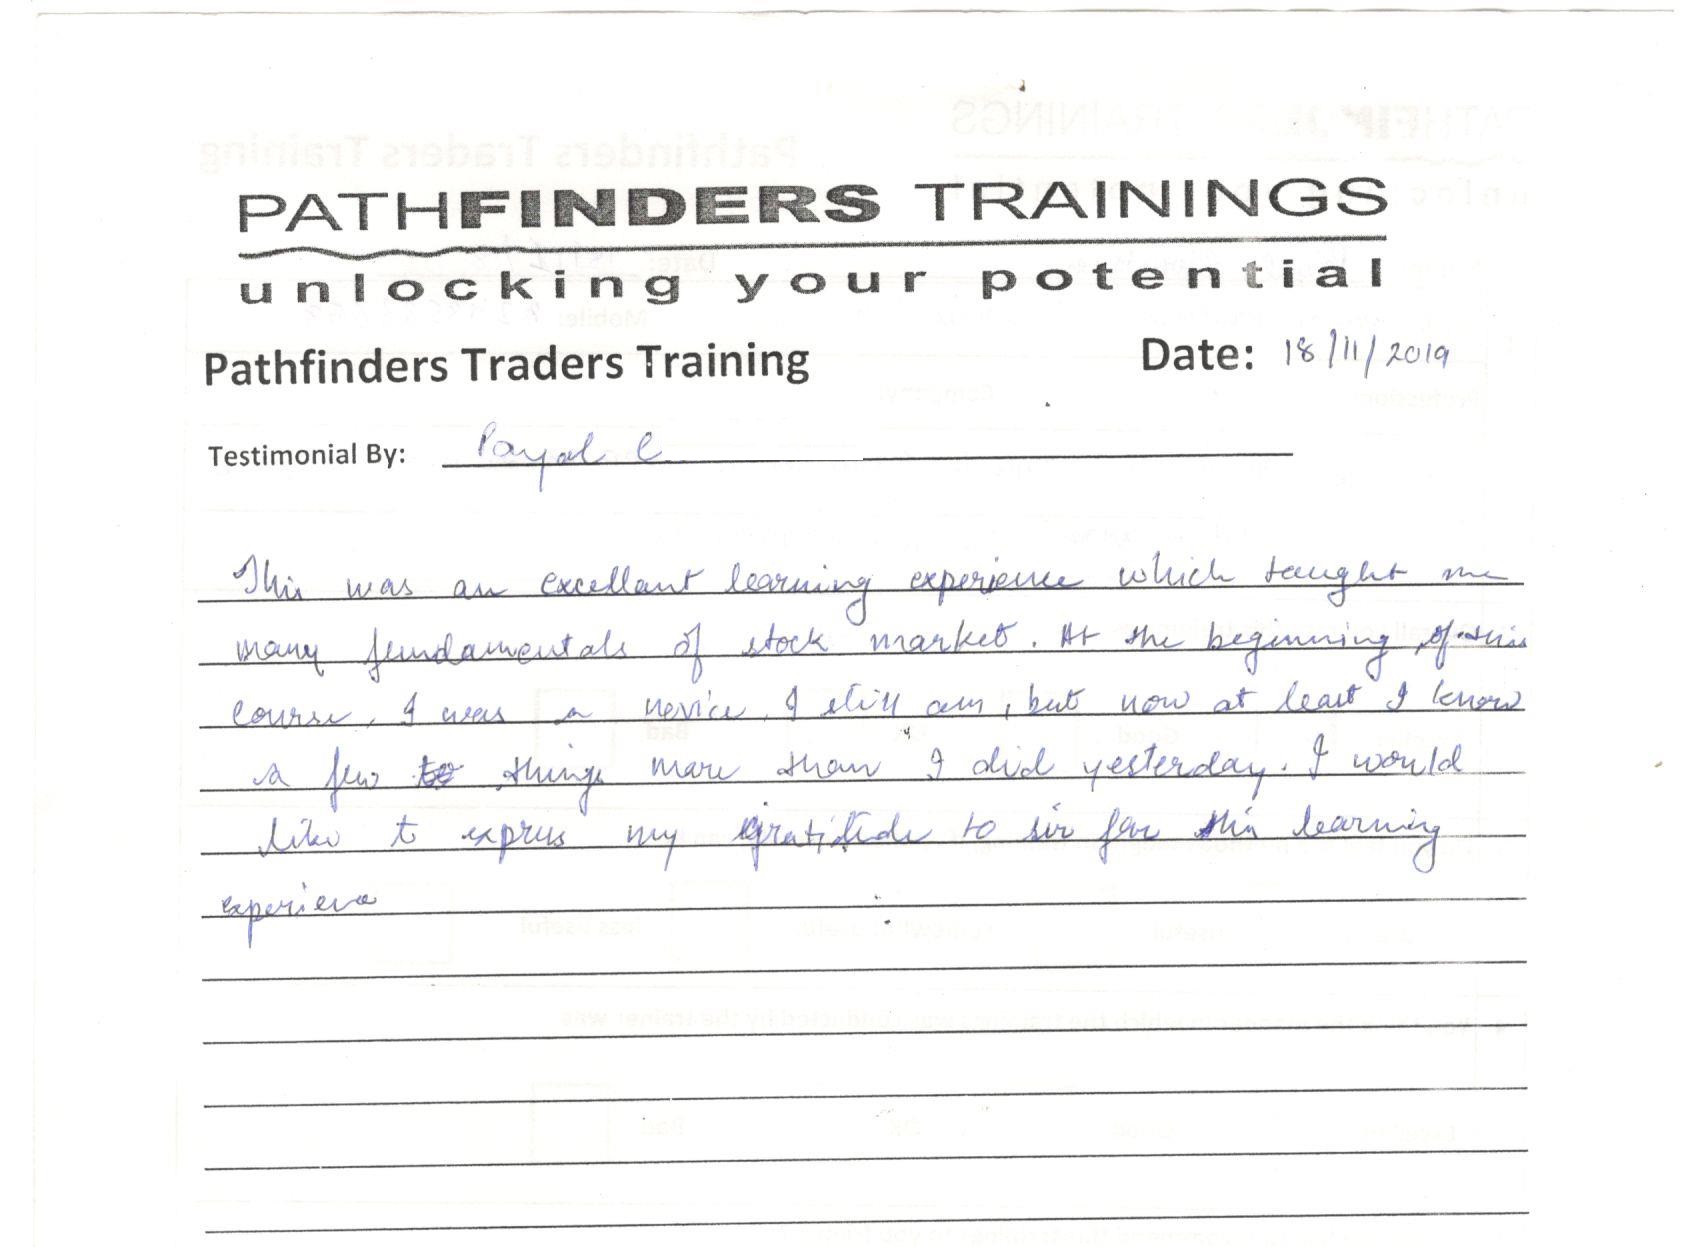 PATHFINDERS TRAININGS
unlocking your potential
Pathfinders Traders Training Date: 18/11/2019
Testimonial By: Payal C
This was an excellant learning experience which taught me
many fundamentals of stock market. At the beginning of this
course, I was a novice. I still am, but now at least I know
a few things more than I did yesterday. I would
like to express my gratitude to sir for this learning
experience